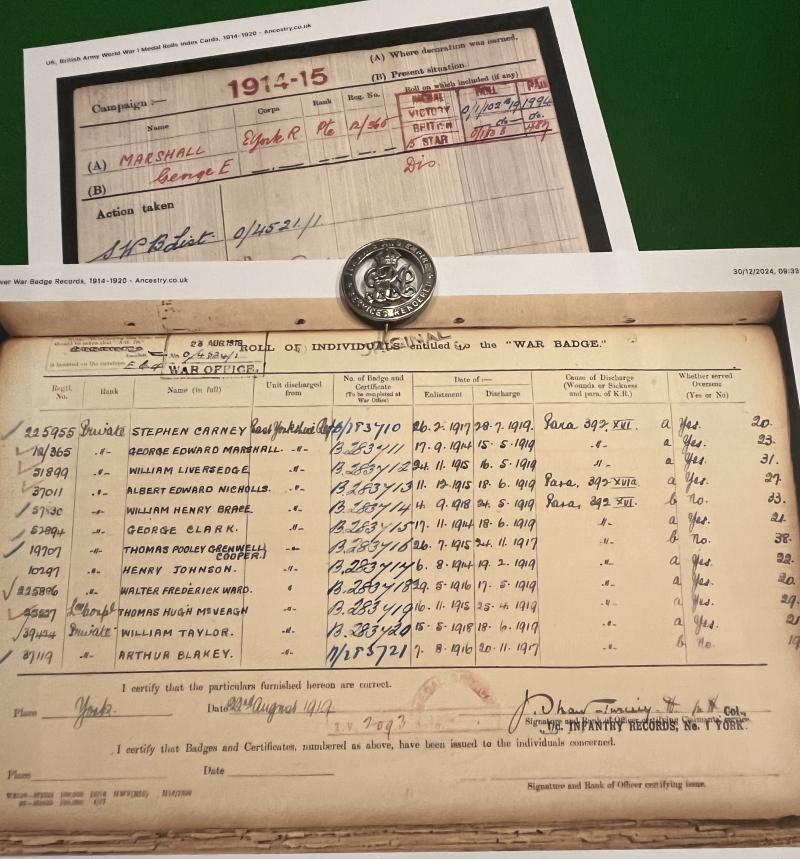 UK, British Army World War I Medal Rolls Index Cards, 1914-1920 - Ancestry.co.uk
Campaign :— 1914-15 (A) Where decoration was earned.
(B) Present situation
Name Corps Rank Reg. No. Roll on which included (if any)
MEDAL ROLL PAGE
(A) MARSHALL E York R Pte 12/365 VICTORY 0/1/102 B19 1994
(B) George E BRITISH -do- do.
15 STAR
Dis.
Action taken
S W B List. 0/4521/1
ver War Badge Records, 1914-1920 - Ancestry.co.uk 30/12/2024, 09:33
FOR KING AND EMPIRE SERVICES RENDERED
23 AUG 1919 ROLL OF INDIVIDUALS entitled to the "WAR BADGE."
ORIGINAL
WAR OFFICE.
Regtl. No. Rank Name (in full) Unit discharged from No. of Badge and Certificate (To be completed at War Office) Date of :— Enlistment Discharge Cause of Discharge (Wounds or Sickness and para. of K.R.) Whether served Overseas (Yes or No)
225955 Private STEPHEN CARNEY East Yorkshire Regt 26. 2. 1917 28. 7. 1919. Para 392 XVI. a Yes. 20.
12/365 -"- GEORGE EDWARD MARSHALL. -"- B.283411 17. 9. 1914 15. 5. 1919 -"- a Yes. 23.
51899 -"- WILLIAM LIVERSEDGE -"- B.283412 24. 11. 1915 16. 5. 1919 -"- a Yes. 31.
37011 -"- ALBERT EDWARD NICHOLLS. -"- B.283413 11. 12. 1915 18. 6. 1919 Para. 392 XVIa. a Yes. 27.
57530 -"- WILLIAM HENRY BRACE -"- B.283414 4. 9. 1918 24. 5. 1919 Para, 392 XVI. b no. 33.
52894 -"- GEORGE CLARK. -"- B.283415 17. 11. 1914 18. 6. 1919 -"- a Yes. 21.
19707 -"- THOMAS POOLEY GRENWELL COOPER.) -"- B.283416 26. 7. 1915 24. 11. 1917 -"- b no. 38.
10297 -"- HENRY JOHNSON. -"- B.283417 6. 8. 1914 19. 2. 1919 -"- a Yes. 22.
225886 -"- WALTER FREDERICK WARD. " B.283418 29. 5. 1916 17. 5. 1919 -"- a Yes. 20.
L/Corpl THOMAS HUGH McVEAGH -"- B.283419 16. 11. 1915 25. 4. 1919 -"- a Yes. 29.
39434 Private WILLIAM TAYLOR. -"- B.283420 15. 5. 1918 18. 6. 1919 -"- a Yes. 21
37119 -"- ARTHUR BLAKEY. -"- 7. 8. 1916 20. 11. 1917 -"- b no. 19
I certify that the particulars furnished hereon are correct.
Place York. Date 22nd August 1919
Col,
Signature and Rank of Officer certifying
I/C. INFANTRY RECORDS, No. 1 YORK.
I certify that Badges and Certificates, numbered as above, have been issued to the individuals concerned.
Place Date
Signature and Rank of Officer certifying issue.